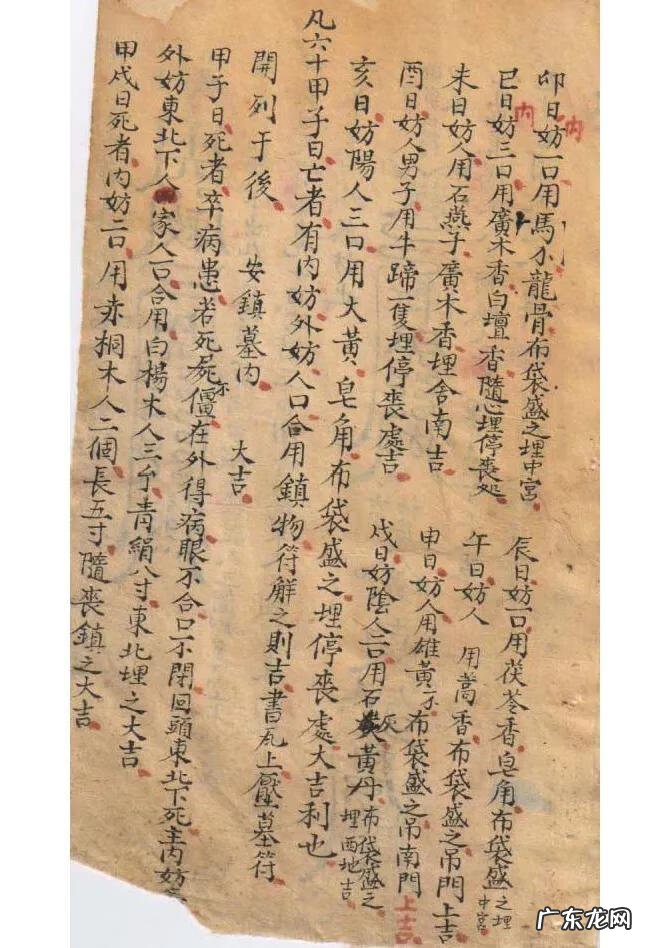 卯日妨一口用馬尔龍骨布袋盛之埋中宮
内
辰日妨一口用茯苓香皂角布袋盛之埋中宮
巳日妨三口用廣木香白壇香隨心埋停喪处
内
午日妨人 用蒿香布袋盛之吊門上吉
未日妨人用石燕子廣木香埋舍南吉
申日妨人用雄黃尔布袋盛之吊南門上吉
酉日妨人男子用牛蹄一隻埋停喪處吉
戌日妨陰人二口用石灰黃丹布袋盛之埋西地吉
亥日妨陽人三口用大黃皂角布袋盛之埋停喪處大吉利也
凡六十甲子日亡者有内妨外妨人口合用鎮物符解之則吉書瓦上壓墓符
開列于後 安鎮墓内 大吉
甲子日死者卒病患若死屍尔僵在外得病眼不合口不閉回頭東北下死主内妨
外妨東北下人家人口合用白楊木人三个青絹八寸東北埋之大吉
甲戌日死者内妨二口用赤桐木人二個長五寸隨喪鎮之大吉
广东龙网